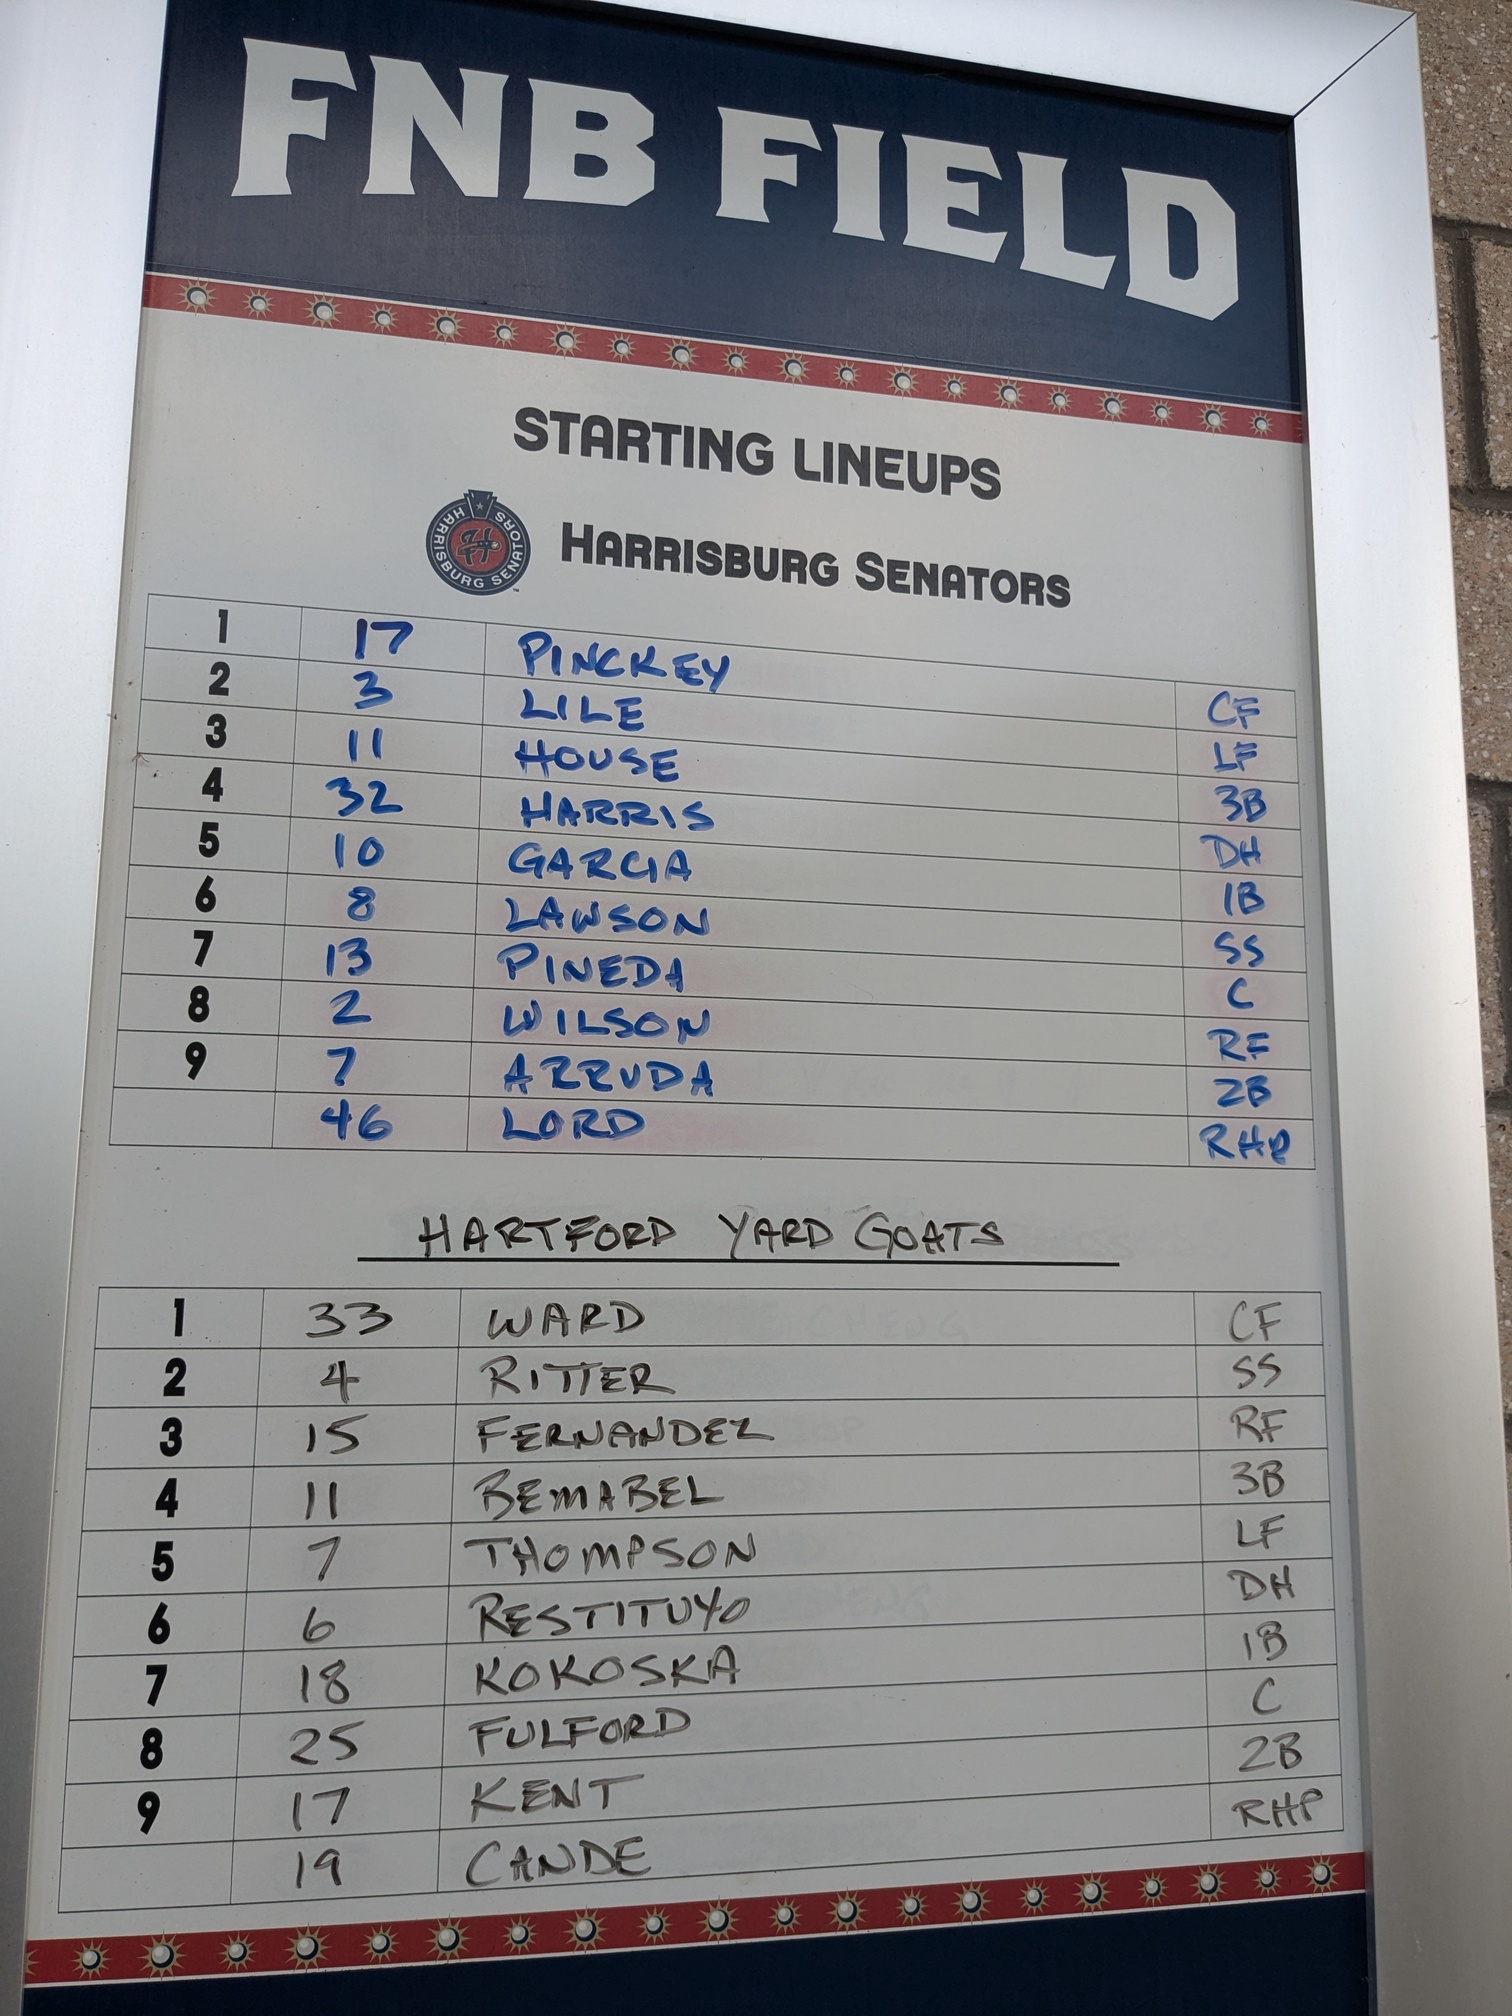 FNB FIELD
STARTING LINEUPS
HARRISBURG SENATORS
HARRISBURG SENATORS
1 17 PINCKEY CF
2 3 LILE LF
3 11 HOUSE 3B
4 32 HARRIS DH
5 10 GARCIA 1B
6 8 LAWSON SS
7 13 PINEDA C
8 2 WILSON RF
9 7 ARRUDA 2B
46 LORD RHP
HARTFORD YARD GOATS
1 33 WARD CF
2 4 RITTER SS
3 15 FERNANDEZ RF
4 11 BEMABEL 3B
5 7 THOMPSON LF
6 6 RESTITUYO DH
7 18 KOKOSKA 1B
8 25 FULFORD C
9 17 KENT 2B
19 CANDE RHP